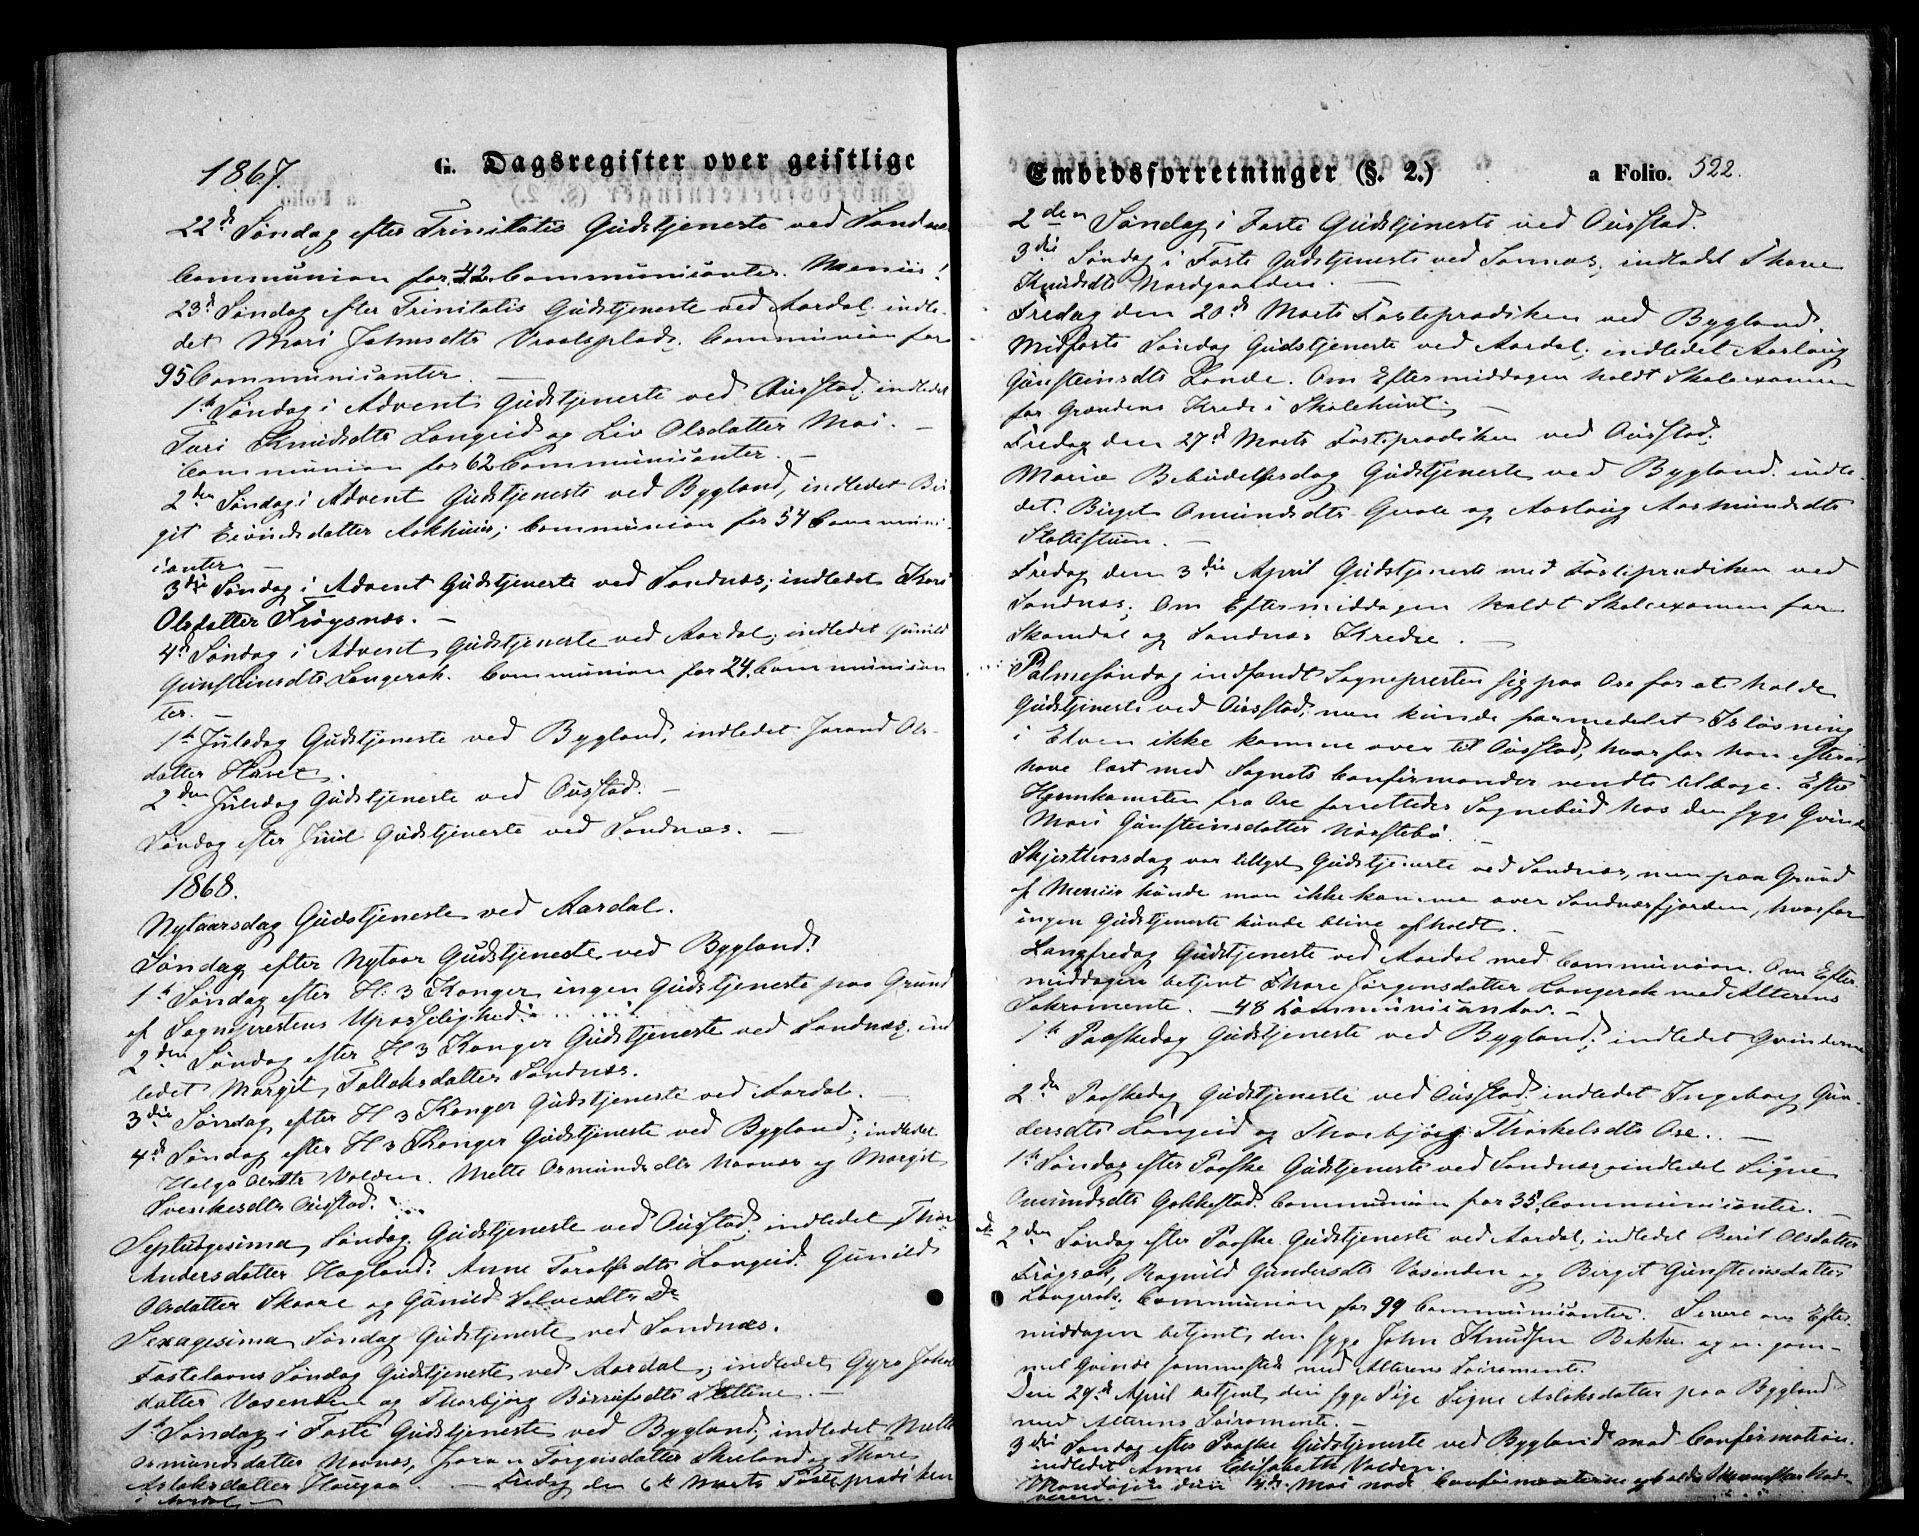 1867.
G. Dagsregister over geistlige
22d Søndag efter Trinitatis Gudstjeneste ved Sandnæs
Communion for 42 Communicanter. Meniis!
23d Søndag efter Trinitatis Gudstjeneste ved Aardal; indle-
det Mari Johnsdtr Vraalsplads. Communion for
95 Communicanter. —
1ste Søndag i Advent Gudstjeneste ved Austad; indledet
Turi Knudsdtr Langeid og Liv Olsdatter Moi. —
Communion for 62 Communicanter. —
2den Søndag i Advent Gudstjeneste ved Bygland, indledet Bir
git Eivindsdatter Aakhuus; Communion for 54 Communi-
canter —
3die Søndag i Advent Gudstjeneste ved Sandnæs; indledet Kari
Olsdatter Frøysnæs. —
4de Søndag i Advent Gudstjeneste ved Aardal; indledet Gunild
Gunsteinsdtr Langerak. Communion for 24 Communican
ter. —
1ste Juledag Gudstjeneste ved Bygland, indledet Jorand Ols-
datter Huset.
2den Juledag Gudstjeneste ved Austad. —
Søndag efter Juul Gudstjeneste ved Sandnæs. —
1868.
Nytaarsdag Gudstjeneste ved Aardal.
Søndag efter Nytaar Gudstjeneste ved Bygland.
1ste Søndag efter H: 3 Konger ingen Gudstjeneste paa Grund
af Sognepræstens Upasselighed.
2den Søndag efter H 3 Konger Gudstjeneste ved Sandnæs; ind
ledet Margit Tallaksdatter Sandnæs.
3die Søndag efter H 3 Konger Gudstjeneste ved Aardal. —
4de Søndag efter H 3 Konger Gudstjeneste ved Bygland; indledet
Helga Olsdtr Valden. Mette Asmundsdtr Naanæs og Margit
Austad.
Septuagesima Søndag Gudstjeneste ved Austad; indledet Thor
Andersdatter Hagland. Anne Taralfsdtr Langeid. Gunild
Olsdatter Skaare og Gunild Salvesdtr Do
Sexagesima Søndag Gudstjeneste ved Sandnæs.
Fastelavns Søndag Gudstjeneste ved Aardal; indledet Gyro Johns
datter Vasenden og Thorbjørg
1ste Søndag i Faste Gudstjeneste ved Bygland; indledet Mette
Asmundsdatter Naanæs, Targeisdatter Skeeland og Thore
Aslaksdatter Haugaa. — Fredag den 6te Marts Fasteprædiken
i Aardal —
Embedsforretninger (§. 2.)
a Folio. 522.
2den Søndag i Faste Gudstjeneste ved Austad.
3die Søndag i Faste Gudstjeneste ved Sannæs, indledet Thore
Knudsdtr Nordgaarden. —
Fredag den 20de Marts Fasteprædiken ved Bygland.
Midfaste Søndag Gudstjeneste ved Aardal; indledet Aaslaug
Gunsteinsdtr Lande. Om Eftermiddagen holdt Skoleexamen
for Grændens Kreds i Skolehuset. —
Fredag den 27de Marts Fasteprædiken ved Austad.
Mariæ Bebudelsesdag Gudstjeneste ved Bygland; indle-
det Birget Omundsdtr Qvale og Aaslaug Aasmundsdtr
Stallestuen. —
Fredag den 3die April Gudstjeneste med Fasteprædiken ved
Sandnæs. Om Eftermiddagen holdt Skoleexamen for
Skamdal og Sandnæs Kredse. —
Palmesøndag indfandt Sognepresten sig paa Ose for at holde
Gudstjeneste ved Austad; men kunde formedelst Isløsning
i Elven ikke komme over til Austad, hvorfor han efterat
have læst med Sognets Confirmander vendte tilbage. Efter
Hjemkomsten fra Ose forrettedes Sognebud hos den syge Qvinde
Mari Gunsteinsdatter Norstebø.
Skjærthorsdag var tillyst Gudstjeneste ved Sandnæs, men paa Grund
af Meniis kunde man ikke komme over Sandnæsfjorden, hvorfor
ingen Gudstjeneste kunde blive afholdt. —
Langfredag Gudstjeneste ved Aardal med Communion. Om Efter-
middagen betjent Thore Jørgensdatter Langerak med Alterens
Sakramente. — 48 Communicanter. —
1ste Paaskedag Gudstjeneste ved Bygland; indledet Qvinderne
2den Paaskedag Gudstjeneste ved Austad. indledet Ingeborg Gun-
dersdtr Langeid og Thorbjørg Thorkelsdtr Ose. —
1ste Søndag efter Paaske Gudstjeneste ved Sandnæs, indledet Signe
Omundsdtr Gakkestad. Communion for 35 Communicanter. —
2den Søndag efter Paaske Gudstjeneste ved Aardal, indledet Berit Olsdatter
Frøyrak, Ragnild Gundersdtr Vasenden og Birgit Gunsteinsdatter
Langerak. Communion for 99 Communicanter. Senere om Efter-
middagen betjent den syge John Knudsen Bakke og en gam-
mel Qvinde sammested med Alterens Sacramente.
Den 29de April betjent den syge Pige Signe Aslaksdatter paa Bygland
med Alterens Sacramente. —
3die Søndag efter Paaske Gudstjeneste ved Bygland med Confirmation.
indledet Anne Elisabeth Valden.
Mandagen den 4de Mai